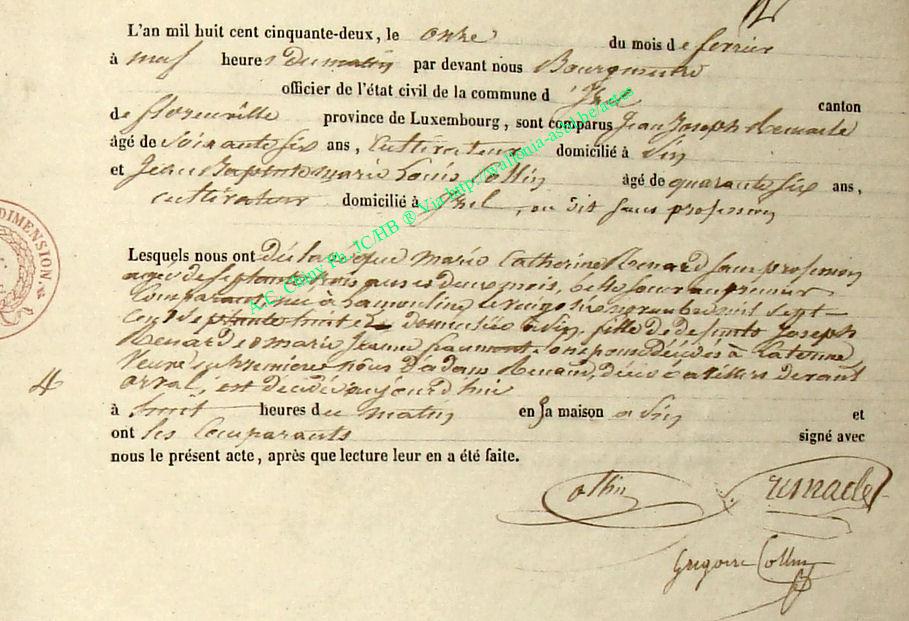 L'an mil huit cent cinquante-deux, le onze du mois de fevrier
à neuf heures du matin par devant nous Bourgmestre
officier de l'état civil de la commune d'Izel canton
de florenville province de Luxembourg, sont comparus Jean Joseph Remacle
âgé de soixante six ans, Cultivateur domicilié à Pin
et Jean Baptiste marie Louis Collin âgé de quarante six ans,
cultivateur domicilié à Izel, sans profession
Lesquels nous ont déclaré que marie Catherine Renard sans profession
agée de septante trois ans et deux mois, du premier
Comparant née à Lamouline le novembre mil sept
Cent septante huit et domiciliée à Pin, fille de défunts Joseph
Renard et marie Jeanne décédés à
veuve en premières nôces d'adam décédé à Villers devant
orval, est décédée aujourd'hui
à huit heures du matin en sa maison a Pin et
ont les Comparants signé avec
nous le présent acte, après que lecture leur en a été faite.
Collin remacle
Grégoire Collin
4
DIMENSION.
A.C. Chiny Ph. JC/HB ® Via http://wallonia-asbl.be/actes